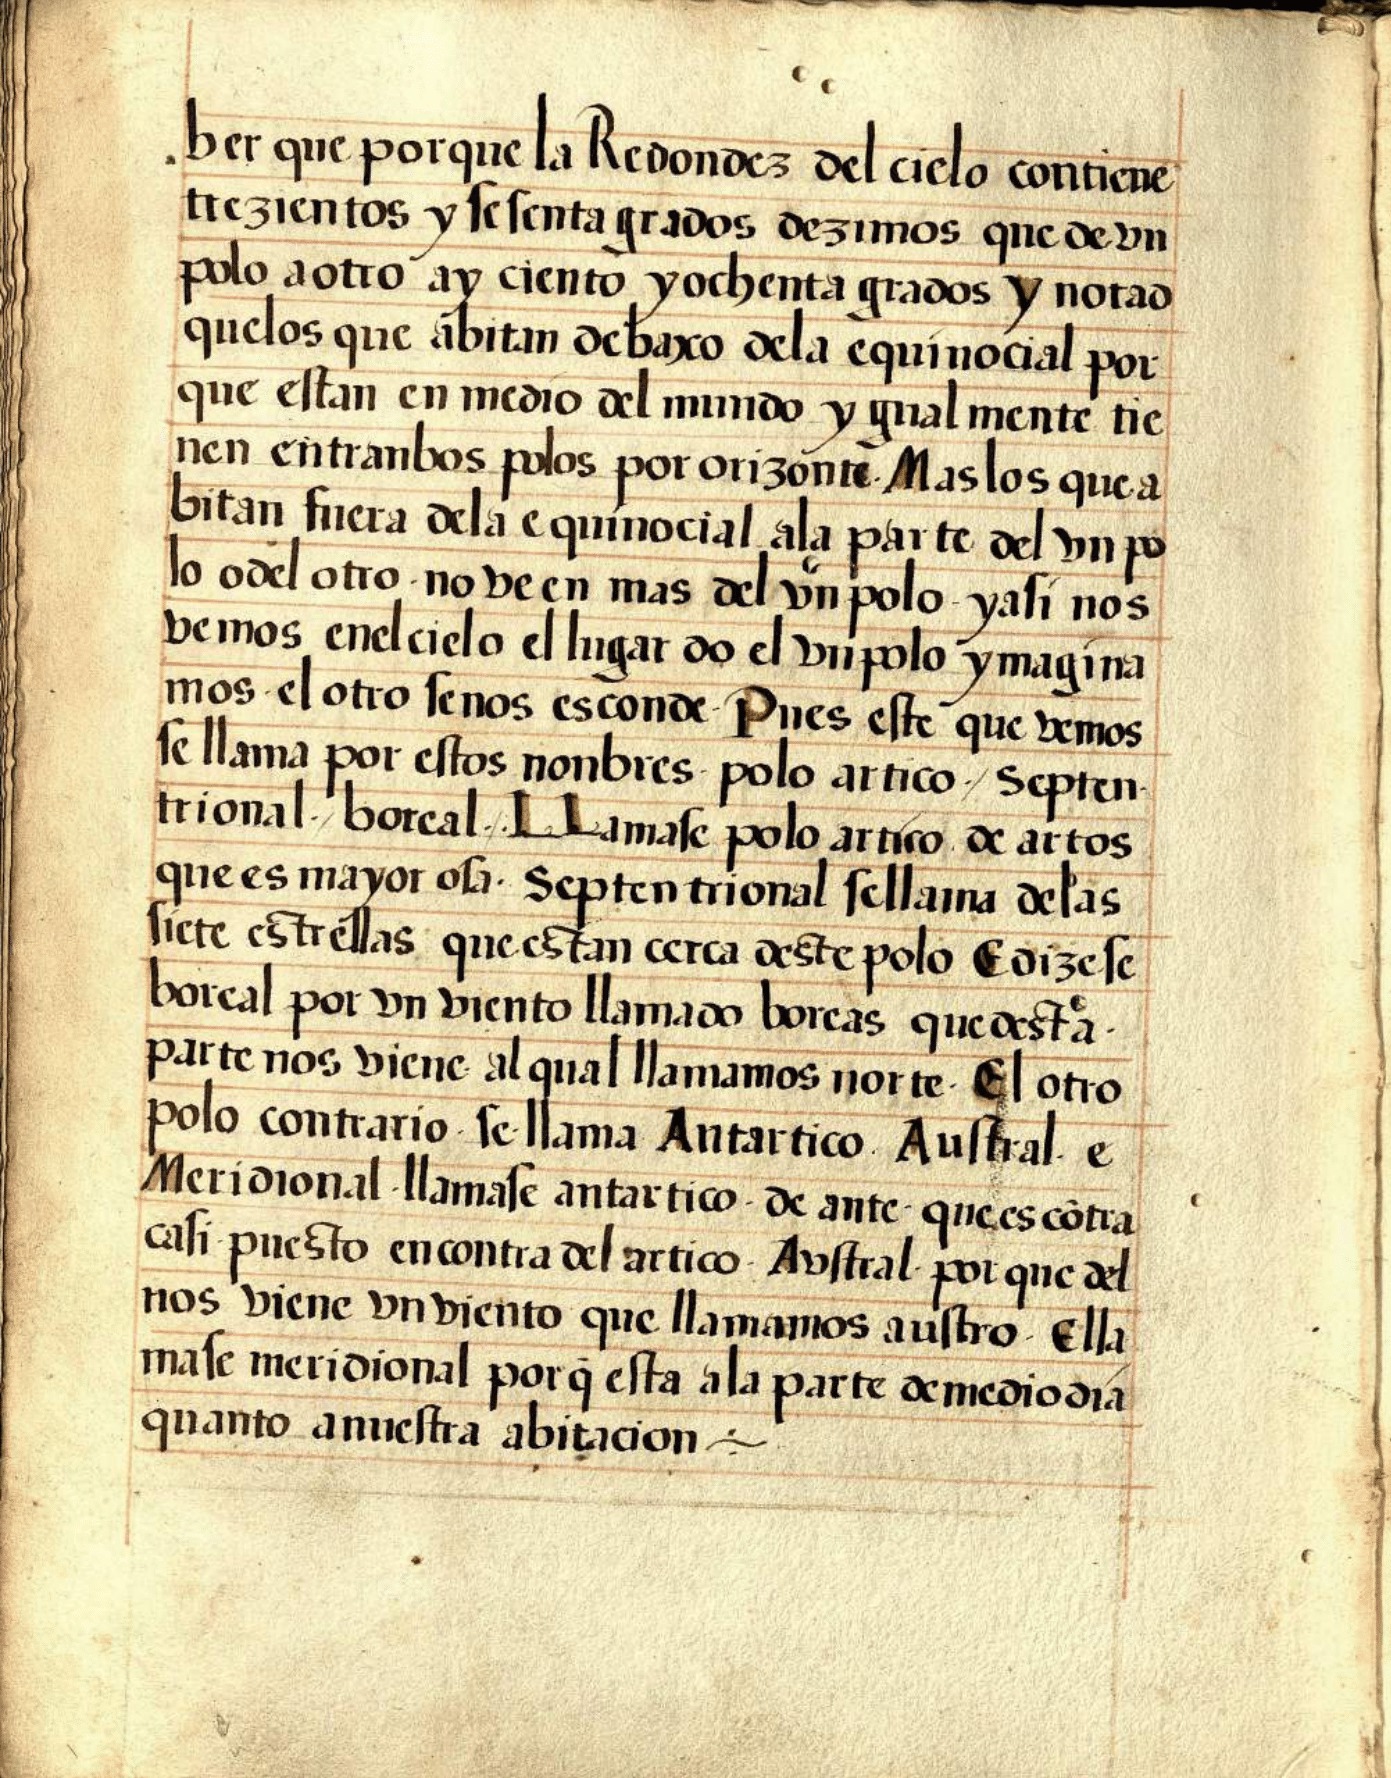 ber que porque la Redondez del cielo contiene
trezientos y sesenta grados dezimos que de vn
polo a otro ay ciento y ochenta grados y notad
quelos que abitan debaxo dela equinocial por
que estan en medio del mundo y gual mente tie
nen entranbos polos por orizonte. Mas los que a
bitan fuera dela equinocial ala parte del vn po
lo o del otro · no veen mas del vn polo · y asi nos
vemos enel cielo el lugar do el vn polo ymagina
mos · el otro senos esconde · Pues este que vemos
se llama por estos nonbres · polo artico ·/ Septen·
trional ·/ boreal ·/. LLamase polo artico de artos
que es mayor osa · Septentrional sellama delas
siete estrellas que estan cerca deste polo E dizese
boreal por vn viento llamado boreas que desta ·
parte nos viene al qual llamamos norte · El otro
polo contrario · se llama Antartico · Austral · e
Meridional · llamase antartico · de ante · que es cõtra
casi puesto en contra del artico · Avstral · por que del
nos viene vn viento que llamamos austro · E lla
mase meridional porq̃ esta ala parte de medio dia
quanto a nuestra abitacion ~